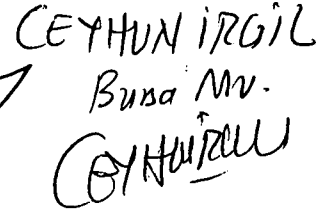 CEYHUN İRGİL
Bursa Mv.